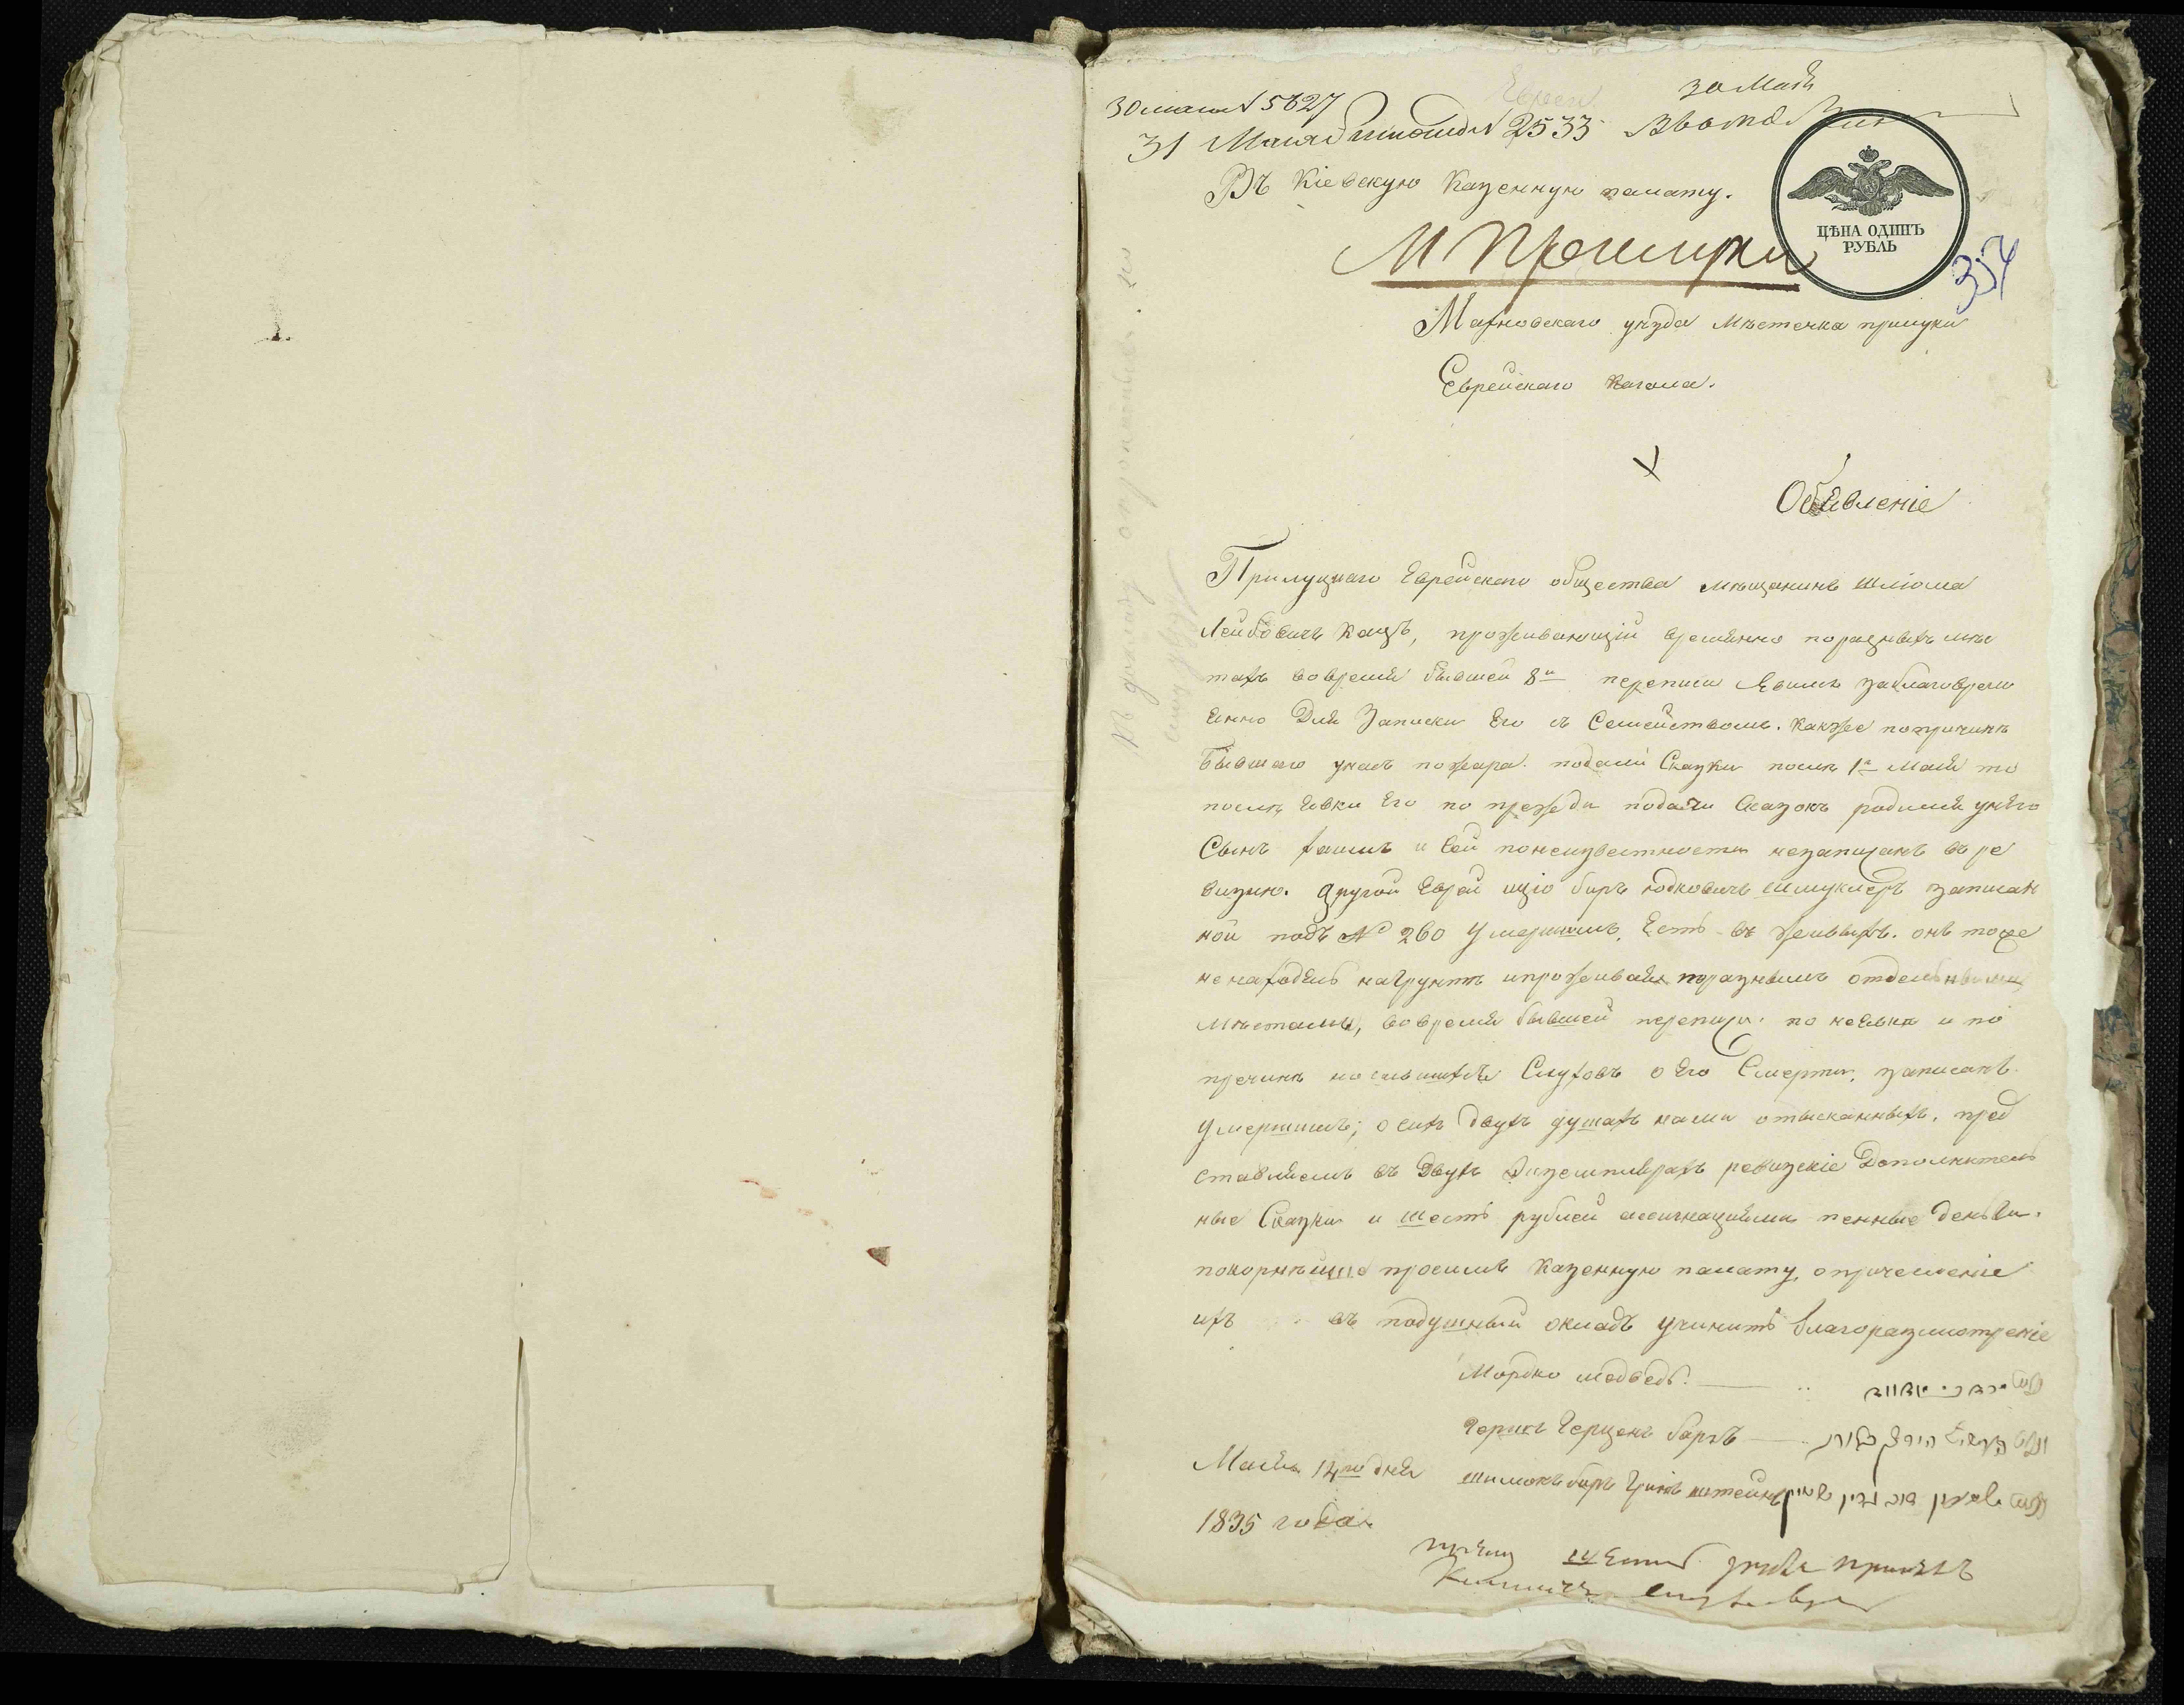 Евреи
30 Маія
30 маія № 5627
31 Маія № 2533
Въ Кіевскую Казенную палату.
ЦѢНА ОДИНЪ
РУБЛЬ
М Прилуки
354
Махновскаго уѣзда Мѣстечка прилуки
Еврейскаго Кагала.
Объявленіе
Прилуцкаго Еврейскаго общества мѣщанинъ Шліома
Лейбовичъ Кацъ, проживающій временно поразныхъ мѣс
тахъ вовремя бывшей 8й переписи явилъ заблаговреме
енно Для Записки Его съ Семействомъ. какже попричинѣ
Бывшаго унасъ пожара подали Сказки послѣ 1го Маія то
послѣ явки Его по прежди подачи Сказокъ родился унего
Сынъ Хаимъ и сей понеизвестности незаписанъ въ ре
визию. Другой Еврей иціо беръ юдковичъ Шмуклеръ записан
ной подъ № 260 умершимъ, Есть въ живыхъ. онъ тоже
не находясь нагрунтѣ ипроживая поразнымъ отдельнымъ
мѣстамъ, вовремя бывшей переписи по неявки и по
пречинѣ носившихся Слуховъ о Его Смерти, записанъ
умершимъ; о сихъ двухъ душахъ нами отысканныхъ, пред
ставляемъ въ Двухъ Экземплярахъ ревизскіе Дополнитель
ные Сказки и шесть рублей ассигнаціями пенные деньги.
покорнѣйше просимъ Казенную палату опричесленіе
ихъ въ подушный окладъ учинить благоразмотреніе
Мордко медведь.
герикъ Герценъ барзъ
Маія 14го дня шимонъ беръ Гринь штейнъ
1835 года